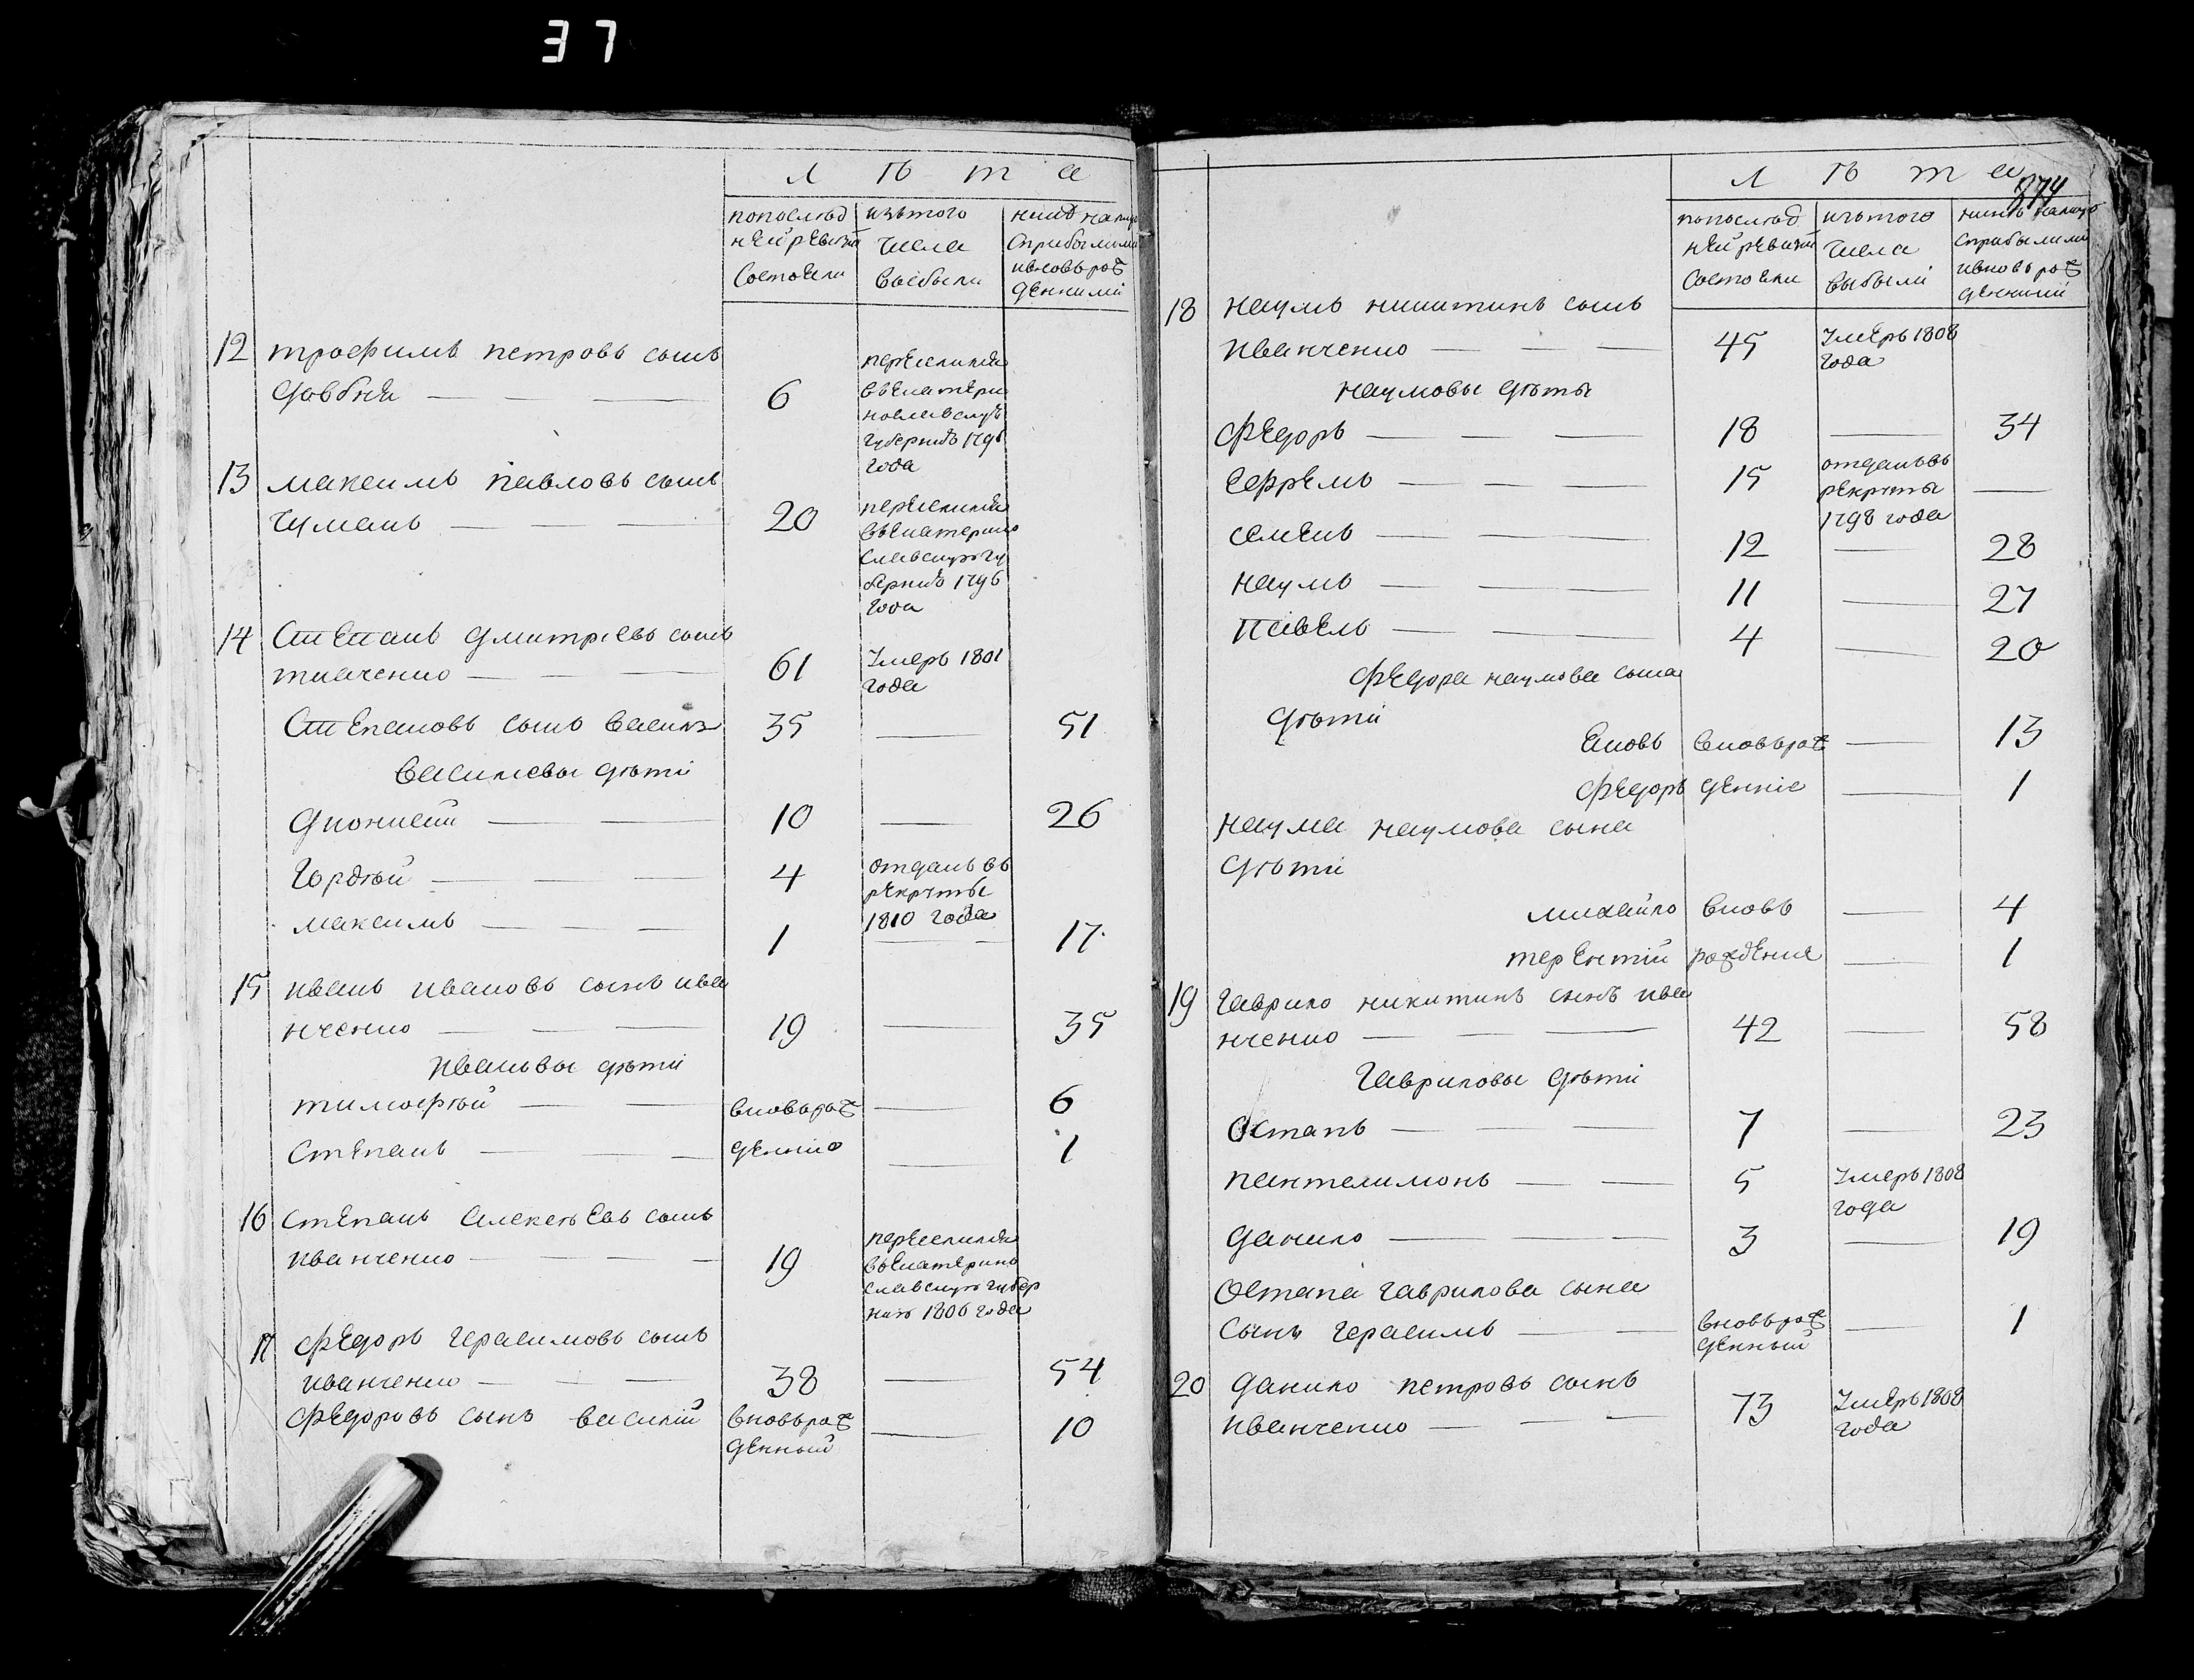 37
Л ѣ т а
попослѣд нейревизiи состояли
изътого числа выбыли
нинѣ налицо сприбылими ивновьрож денними
12 трофимъ петровъ сынъ
довбня 6
переселился
въекатери
нославскую
губернiю 1796
года
13 максимъ павловъ сынъ
чуманъ 20
переселился
въекатерино
славскую гу
бернiю 1796
года
14 степанъ дмитрiевъ сынъ
ткаченко 61 умеръ 1801
года
степановъ сынъ василiй 35 — 51
василиевы дѣти
дионисiй 10 — 26
гордѣй 4 отданъ въ
рекруты
1810 года
максимъ 1 — 17
15 иванъ ивановъ сынъ ива
нченко 19 — 35
ивановы дѣти
тимофѣй вновьрож — 6
степанъ деннiе — 1
16 степанъ алексѣевъ сынъ
иванченко 19
переселился
въекатерино
славскую губер
нiю 1806 года
17 федоръ герасимовъ сынъ
иванченко 38 — 54
федоровъ сынъ василiй вновьрож — 10
денный
374
Л ѣ т а
попослѣд нейревизiи состояли
изътого числа выбыли
нинѣ налицо сприбылими ивновьрож денними
18 наумъ никитинъ сынъ
иванченко 45 умеръ 1808
года
наумовы дѣты
федоръ 18 — 34
ефремъ 15 отданъвъ
рекруты —
1798 года
семенъ 12 — 28
наумъ 11 — 27
павелъ 4 — 20
федора наумова сына
дѣти
яковъ вновьрож — 13
федоръ деннiе — 1
наума наумова сына
дѣти
михайло вновь — 4
терентiй рожденiе — 1
19 гаврило никитинъ сынъ ива
нченко 42 — 58
гавриловы дѣти
остапъ 7 — 23
пантелимонъ 5 умеръ 1808
года
данило 3 — 19
остапа гаврилова сына
сынъ герасимъ вновьрож — 1
денный
20 данило петровъ сынъ
иванченко 73 умеръ 1808
года